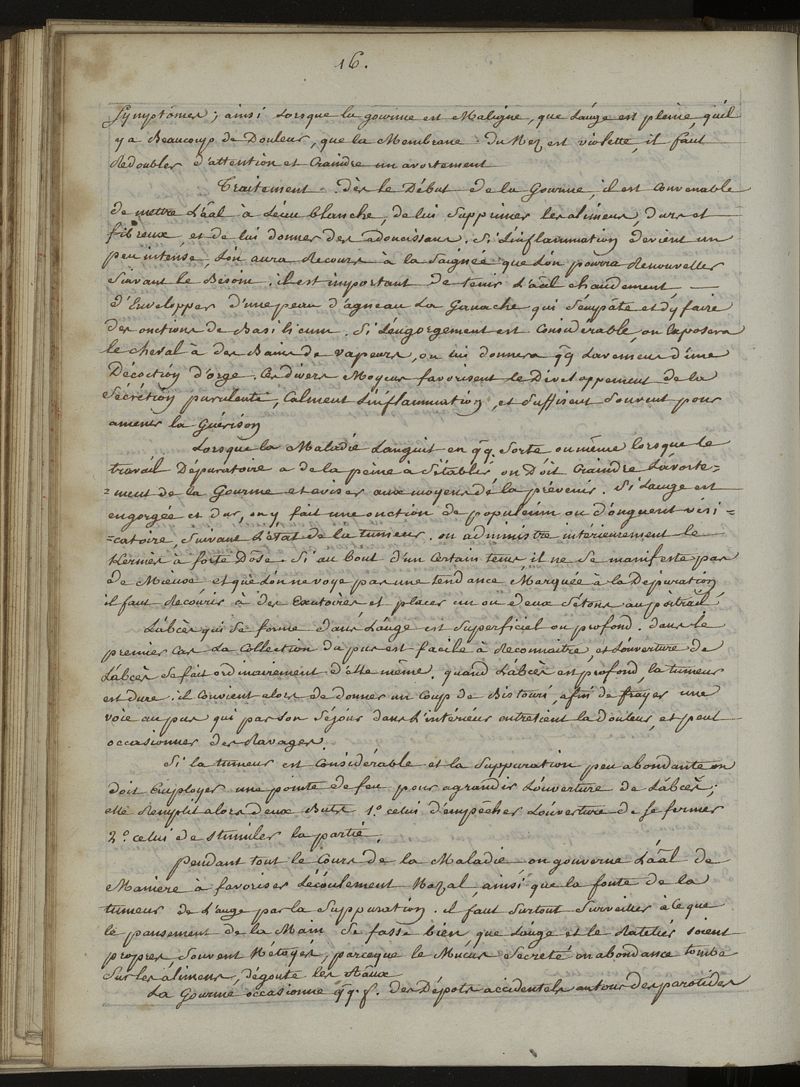 16.
Symptômes ; ainsi Lorsque la gourme est Maligne, que L'auge est pleine, qu'il
y a Beaucoup de Douleur, que la Membrane du Nez est violette, il faut
Redoubler d'attention et Craindre un avortement
Traitement . dès le Début de la Gourme, il est Convenable
de mettre L'aãl à L'eau blanche, de lui Supprimer les alimens durs et
fibreux, et de lui donner des adoucissans, Si L'inflammation devient un
peu intense, L'on aura Recours à la Saignée que L'on pourra Renouveller
Suivant le Besoin. il est important de tenir L'aãl chaudement,
d'Envelopper d'une peau d'agneau La Ganache qui S'empâte et d'y faire
des onctions de Basilicum. Si L'engorgement est Considérable, on Exposera
le cheval à des Bains de vapeurs, on lui donnera q͞q Lavemens d'une
Décoction d'orge. Ces divers Moyens favorisent le Développement de la
Sécrétion purulente, Calment L'inflammation, et Suffisent Souvent pour
amener la Guérison
Lorsque la Maladie Languit en q͞q. Sorte ou même lorsque le
travail Dépuratoire a de la peine à S'établir, on Doit Craindre L'avorte=
=ment de la Gourme et aviser aux moyens de la prévenir. Si L'auge est
engorgée et dur, on y fait une onction de populeum ou d'onguent vési=
=catoire, Suivant L'état de la tumeur. on administre intérieurement le
Kermès à forte Dose. Si au bout d'un Certain tems, il ne Se manifeste pas
de Mieux et que L'on ne voye pas une tendance Marquée à la Dépuration,
il faut Recourir à des Exutoires et placer un ou deux Sétons au poitrail
L'abcès qui Se forme dans L'auge est Superficiel ou profond. dans le
premier Cas La Collection du pus est facile à Reconnaitre, et L'ouverture de
L'abcès Se fait ordinairement d'elle même. quand L'abcès est profond, la tumeur
est dure. il Convient alors de donner un Coup de Bistouri, afin de frayer une
voie au pus qui par Son Séjour dans L'intérieur entretient la Douleur, et peut
occasionner des Ravages.
Si la tumeur est Considérable et la Suppuration peu abondante on
doit Employer une pointe de feu pour agrandir L'ouverture de L'abcès ;
elle Remplit alors deux Buts 1.° celui d'empêcher L'ouverture de Se fermer
2.° celui de stimuler la partie.
Pendant tout le Cours de la Maladie on gouverne L'aãl de
Manière à favoriser L'écoulement Nazal, ainsi que la fonte de la
tumeur de L'auge par la Suppuration. il faut Surtout Surveiller à Ce que
le pansement de la Main Se fasse bien, que L'auge et le Ratelier soient
propres, Souvent Nétoyés, parceque le Mucus Sécrété en abondance tombe
Sur les alimens, dégoute les a͞aux
La Gourme occasionne q͞q. f. des Dépots accidentels autour des parotides